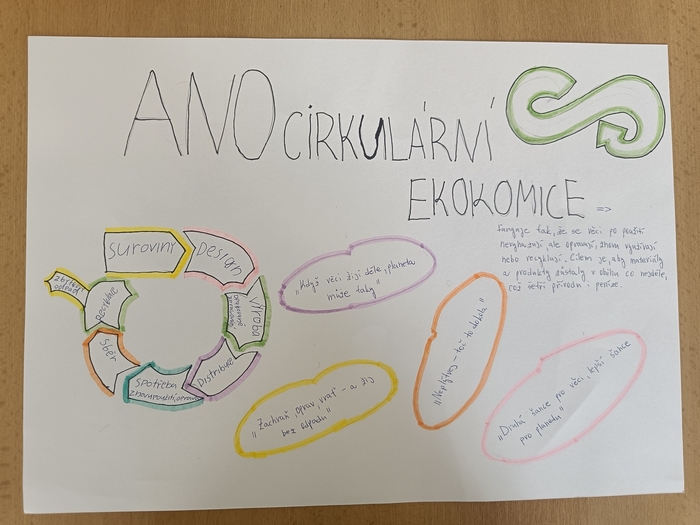 ANO CIRKULÁRNÍ
EKOKOMICE =>
Funguje tak, že se věci po použití
nevyhazují, ale opravují, znovu využívají
nebo recyklují. Cílem je, aby materiály
a produkty zůstaly v oběhu co nejdéle,
což šetří přírodu i peníze.
suroviny
Design
Výroba
Distribuce
Spotřeba
znovupoužití, oprava
Sběr
Recyklace
zbytkový
odpad
„Když věci žijí déle, planeta
může taky"
„Zachraň, oprav, vrať – a žij
bez odpadu"
„Neplýtvej – toč to dokola"
„Druhá šance pro věci, lepší šance
pro planetu"